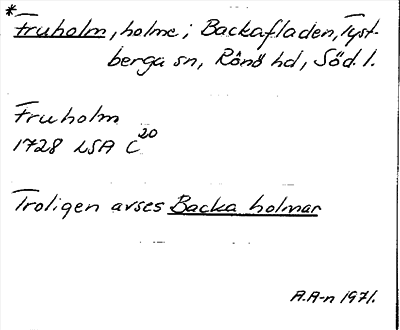 *
Fruholm, holme; Backafladen, Tyst-
berga sn, Rönö hd, Söd. l.
Fruholm
1728 LSA C20
Troligen avses Backa holmar
A.A-n 1971.